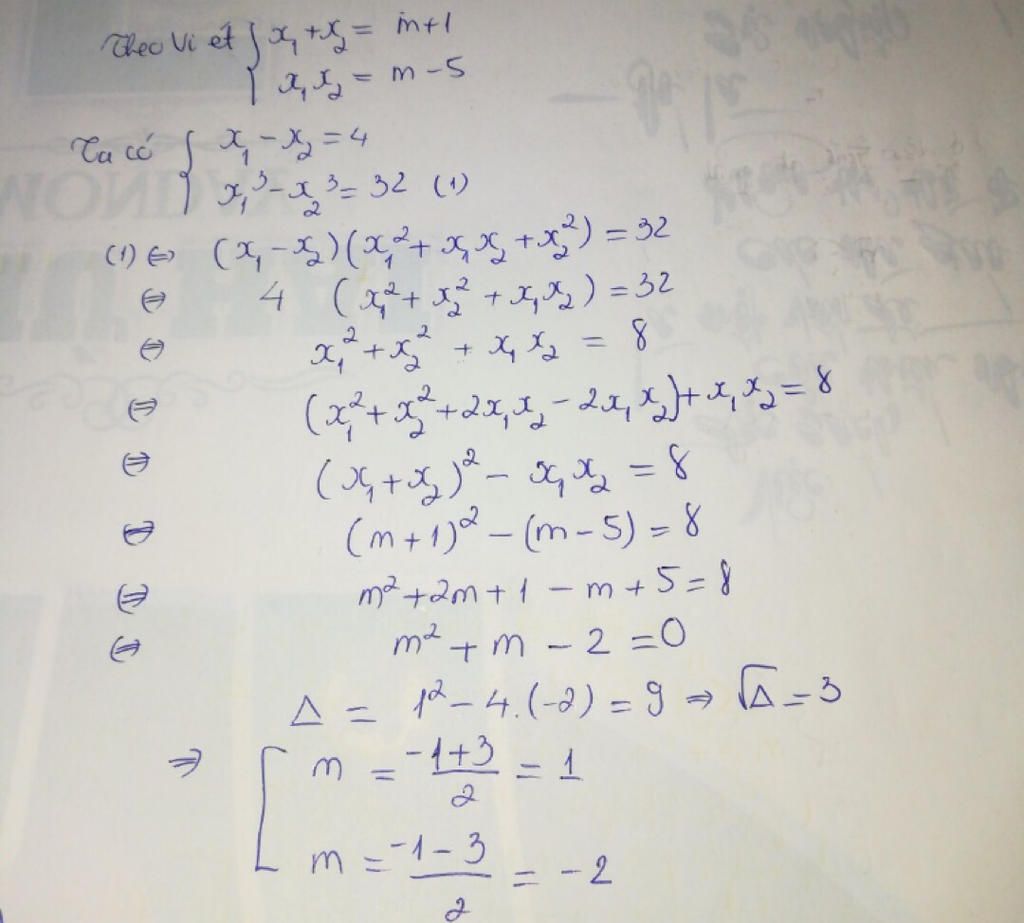 Theo Vi ét { x₁ + x₂ = m+1
x₁x₂ = m - 5
Ta có { x₁ - x₂ = 4
x₁³ - x₂³ = 32 (1)
(1) ⇔ (x₁ - x₂)(x₁² + x₁x₂ + x₂²) = 32
⇔ 4 (x₁² + x₂² + x₁x₂) = 32
⇔ x₁² + x₂² + x₁x₂ = 8
⇔ (x₁² + x₂² + 2x₁x₂ - 2x₁x₂) + x₁x₂ = 8
⇔ (x₁ + x₂)² - x₁x₂ = 8
⇔ (m + 1)² - (m - 5) = 8
⇔ m² + 2m + 1 - m + 5 = 8
⇔ m² + m - 2 = 0
Δ = 1² - 4.(-2) = 9 ⇒ √Δ = 3
⇒ [ m = (-1+3)/2 = 1
m = (-1-3)/2 = -2